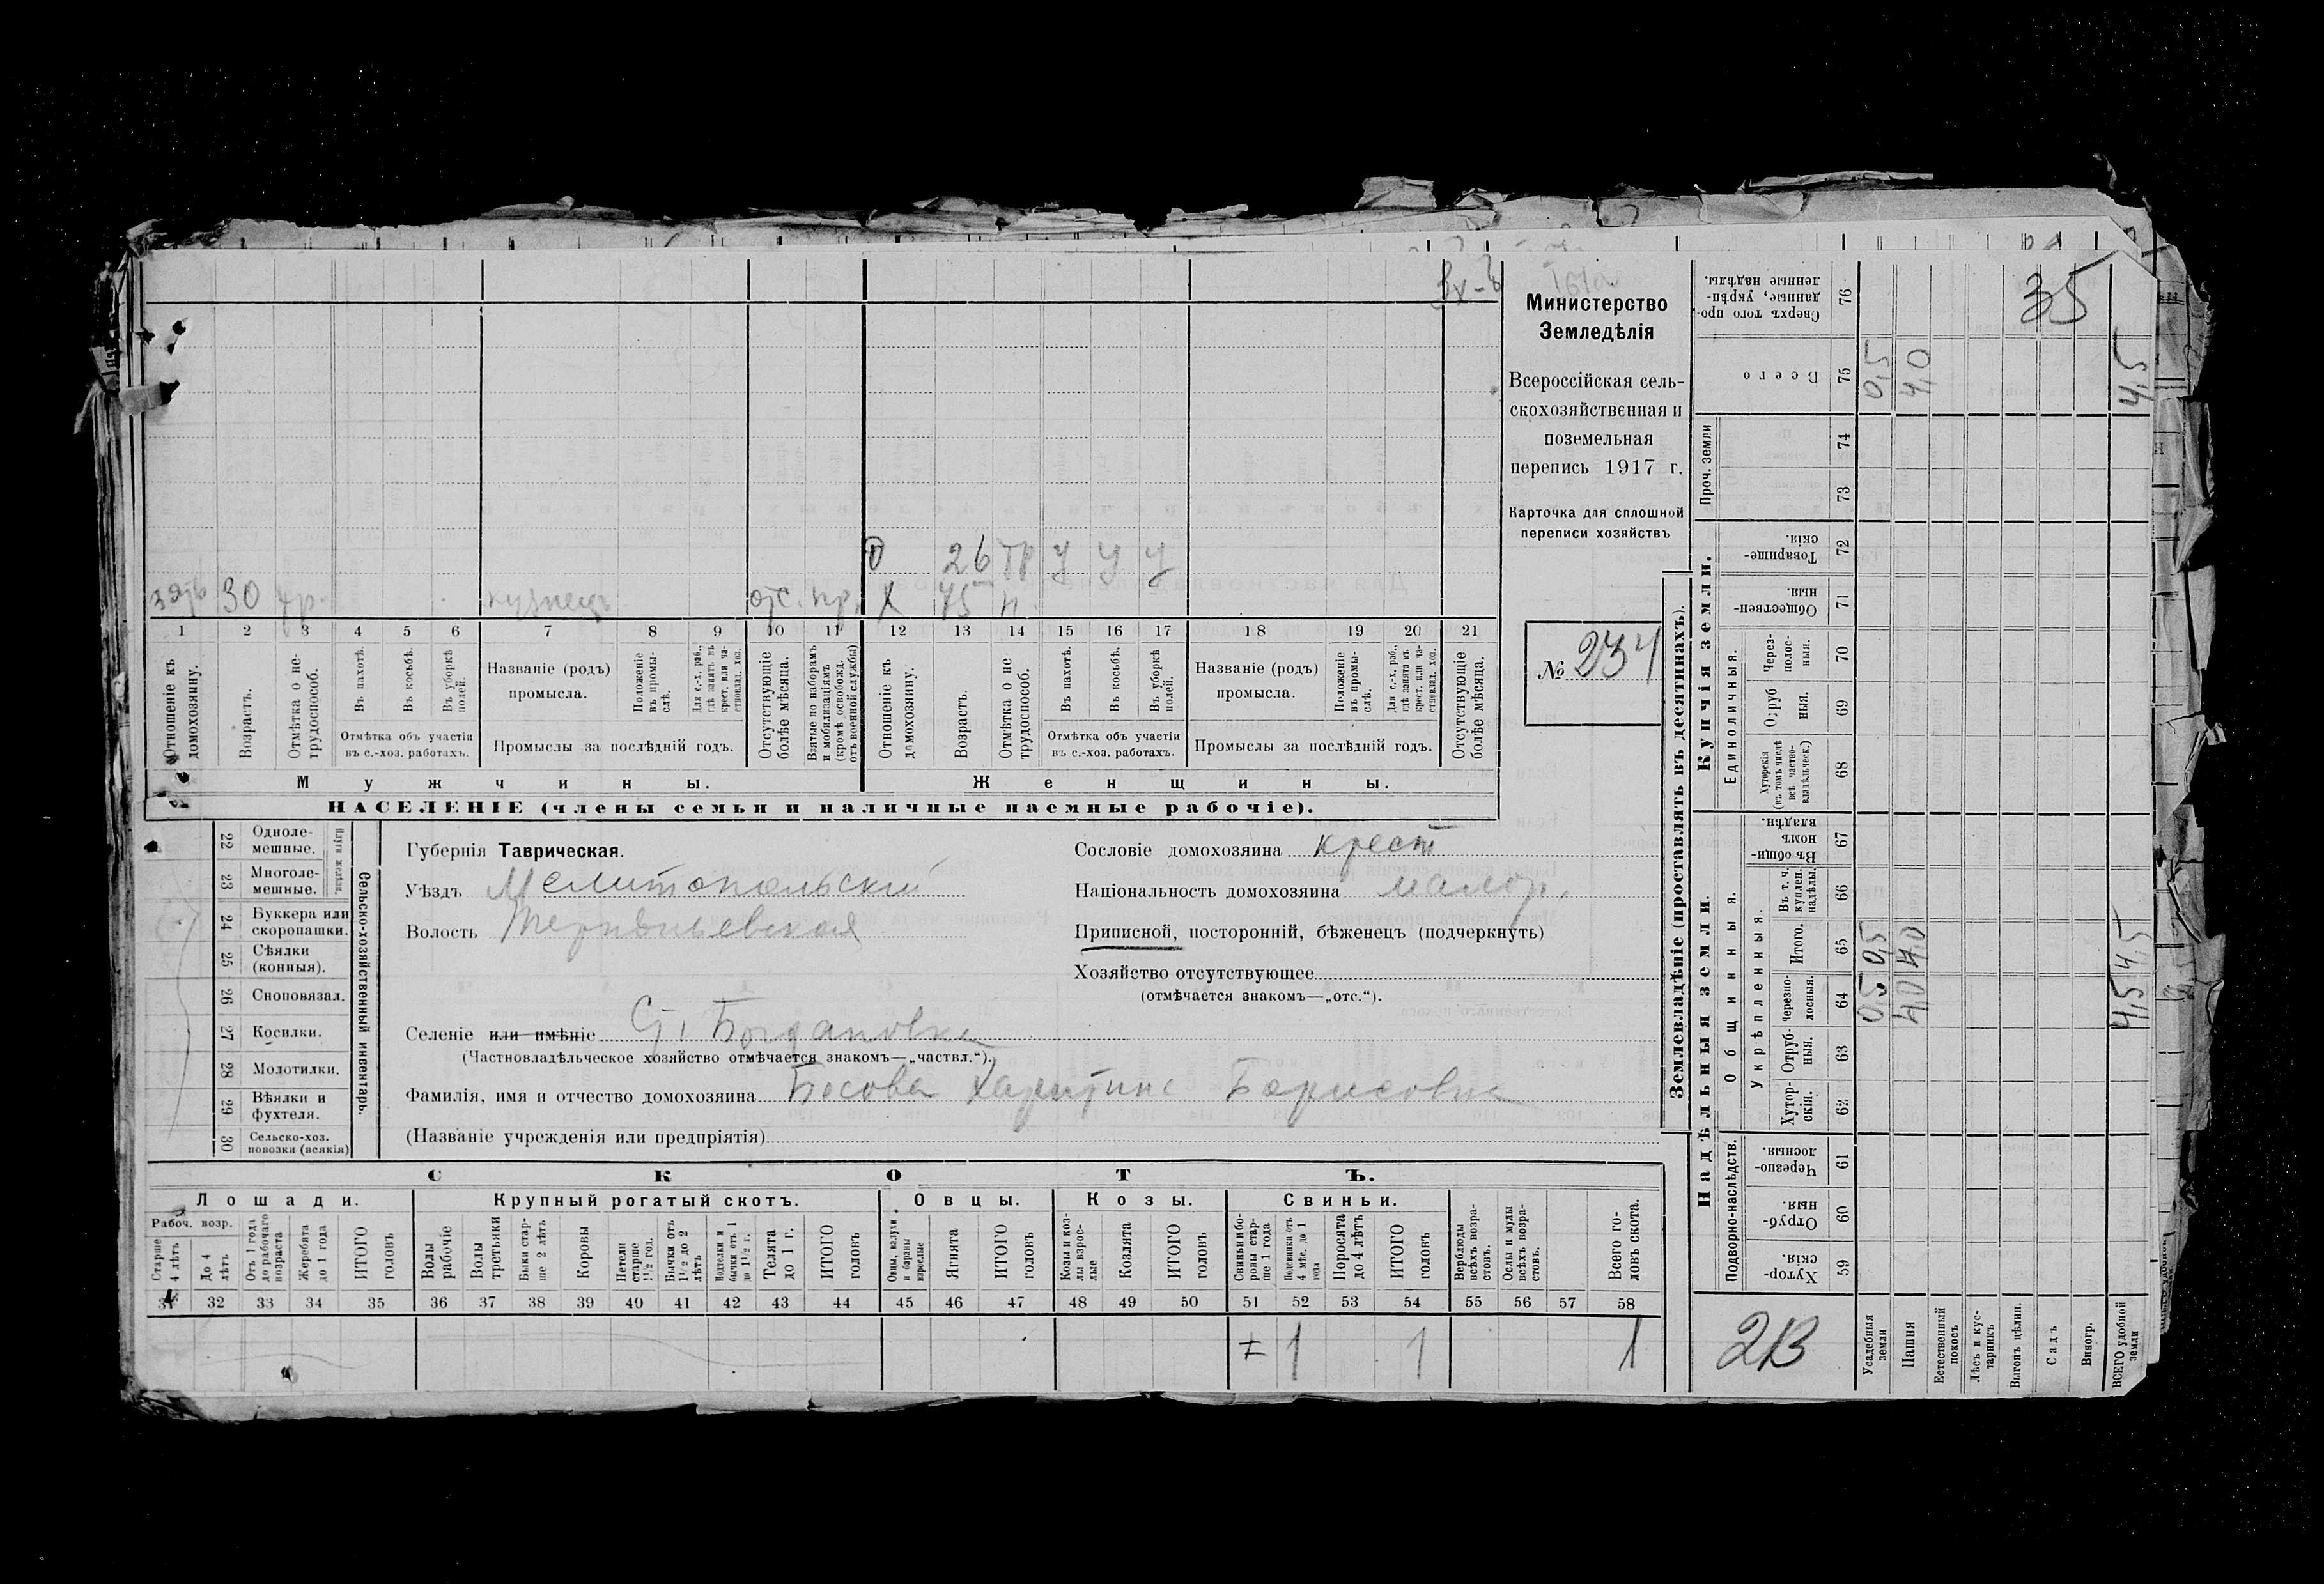 35
Министерство
Земледѣлія
Всероссійская сель-
скохозяйственная и
поземельная
перепись 1917 г.
Карточка для сплошной
переписи хозяйствъ
№ 234
О 26 тр у у у
зять 30 тр. кузнецъ отс. пр. Х 75 п.
1 2 3 4 5 6 7 8 9 10 11 12 13 14 15 16 17 18 19 20 21
Отношеніе къ домохозяину.
Возрастъ.
Отмѣтка о не-трудоспособ.
Въ пахотѣ.
Въ косьбѣ.
Въ уборкѣ полей.
Отмѣтка объ участіи
въ с.-хоз. работахъ.
Названіе (родъ)
промысла.
Положеніе въ промы-слѣ.
Для с.-х. раб., гдѣ занятъ въ крест. или ча-стновлад. хоз.
Промыслы за послѣдній годъ.
Отсутствующіе болѣе мѣсяца.
Взятые по наборамъ и мобилизаціямъ (кромѣ освобожд. отъ военной службы)
Отношеніе къ домохозяину.
Возрастъ.
Отмѣтка о не трудоспособ.
Въ пахотѣ.
Въ косьбѣ.
Въ уборкѣ полей.
Отмѣтка объ участіи
въ с.-хоз. работахъ.
Названіе (родъ)
промысла.
Положеніе въ промы-слѣ.
Для с.-х. раб., гдѣ занята въ крест. или ча-стновлад. хоз.
Промыслы за послѣдній годъ.
Отсутствующіе болѣе мѣсяца.
Мужчины. Женщины.
НАСЕЛЕНІЕ (члены семьи и наличные наемные рабочіе).
22 Одноле-мешные.
23 Многоле-мешные.
24 Буккера или скоропашки.
25 Сѣялки (конныя).
26 Сноповязал.
27 Косилки.
28 Молотилки.
29 Вѣялки и фухтеля.
30 Сельско-хоз. повозки (всякія)
Сельско-хозяйственный инвентарь.
Губернія Таврическая.
Уѣздъ Мелитопольскій
Волость Терпѣньевская
Сословіе домохозяина крест
Національность домохозяина малор.
Приписной, посторонній, бѣженецъ (подчеркнуть)
Хозяйство отсутствующее
(отмѣчается знакомъ—„отс.“).
Селеніе или имѣніе Ст. Богдановка
(Частновладѣльческое хозяйство отмѣчается знакомъ—„частвл.“).
Фамилія, имя и отчество домохозяина Босова Харитина Борисовна
(Названіе учрежденія или предпріятія)
СКОТЪ.
Лошади. Крупный рогатый скотъ. Овцы. Козы. Свиньи.
Рабоч. возр.
Старше 4 лѣтъ
До 4 лѣтъ
Отъ 1 года до рабочаго возраста
Жеребята до 1 года
ИТОГО головъ
Волы рабочіе
Волы третьяки
Быки стар-ше 2 лѣтъ
Коровы
Нетели старше 1½ год.
Бычки отъ 1½ до 2 лѣтъ
Подтелки и бычки отъ 1 до 1½ г.
Телята до 1 г.
ИТОГО головъ
Овцы, валухи и бараны взрослые
Ягнята
ИТОГО головъ
Козы и коз-лы взрос-лые
Козлята
ИТОГО головъ
Свиньи и бо-ровы стар-ше 1 года
Подсвинки отъ 4 мѣс. до 1 года
Поросята до 4 лѣтъ
ИТОГО головъ
Верблюды всѣхъ возра-стовъ.
Ослы и мулы всѣхъ возра-стовъ.
Всего го-ловъ скота.
31 32 33 34 35 36 37 38 39 40 41 42 43 44 45 46 47 48 49 50 51 52 53 54 55 56 57 58
1 1 1
Землевладѣніе (проставлять въ десятинахъ).
Надѣльныя земли. Купчія земли.
Проч. земли
Подворно-наслѣдств.
Общинныя.
Укрѣпленныя.
Единоличныя.
Сверхъ того про-данные, укрѣп-ленные надѣлы. 76
Всего 75 0,5 4,0 4,5
74
73
Товарище-скія. 72
Обществен-ныя. 71
Через-полос-ныя. 70
Отруб ныя. 69
Хуторскія (въ томъ числѣ всѣ частно-владѣльческ.) 68
Въ общи-номъ владѣн. 67
Въ т. ч. куплен. надѣлы. 66
Итого. 65 0,5 4,0 4,5
Черезпо-лосныя. 64 0,5 4,0 4,5
Отруб-ныя. 63
Хутор-скія. 62
Черезпо-лосныя. 61
Отруб-ныя. 60
Хутор-скія. 59
2В
Усадебныя земли
Пашня
Естественный покосъ
Лѣсъ и кус-тарникъ
Выгонъ цѣлин.
Садъ
Виногр.
ВСЕГО удобной земли